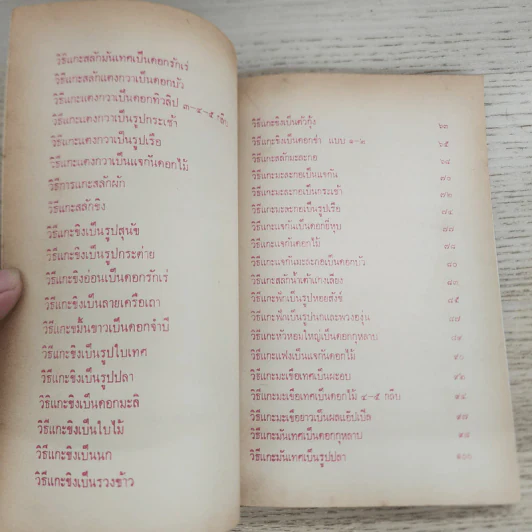 วิธีแกะสลักมันเทศเป็นดอกรักเร่
วิธีแกะสลักแตงกวาเป็นดอกบัว
วิธีแกะแตงกวาเป็นดอกทิวลิป ๓-๔-๕ กลีบ
วิธีแกะแตงกวาเป็นรูปกระเช้า
วิธีแกะแตงกวาเป็นรูปเรือ
วิธีแกะแตงกวาเป็นแจกันดอกไม้
วิธีการแกะสลักผัก
วิธีแกะสลักขิง
วิธีแกะขิงเป็นรูปสุนัข
วิธีแกะขิงเป็นรูปกระต่าย
วิธีแกะขิงอ่อนเป็นดอกรักเร่
วิธีแกะขิงเป็นลายเครือเถา
วิธีแกะขมิ้นขาวเป็นดอกจำปี
วิธีแกะขิงเป็นรูปใบเทศ
วิธีแกะขิงเป็นรูปปลา
วิธีแกะขิงเป็นดอกมะลิ
วิธีแกะขิงเป็นใบไม้
วิธีแกะขิงเป็นนก
วิธีแกะขิงเป็นรวงข้าว
วิธีแกะขิงเป็นตัวกุ้ง
วิธีแกะขิงเป็นดอกข่า แบบ ๑-๒ ๖๕
วิธีแกะสลักมะละกอ ๖๘
วิธีแกะมะละกอเป็นแจกัน ๗๐
วิธีแกะมะละกอเป็นกระเช้า ๗๒
วิธีแกะมะละกอเป็นรูปเรือ ๗๔
วิธีแกะแจกันเป็นดอกยี่หุบ
วิธีแกะแจกันดอกไม้
วิธีแกะแจกันมะละกอเป็นดอกบัว ๘๐
วิธีแกะสลักน้ำเต้าแกงเลียง
วิธีแกะฟักเป็นรูปหอยสังข์ ๘๕
วิธีแกะฟักเป็นรูปนกและพวงองุ่น ๘๗
วิธีแกะหัวหอมใหญ่เป็นดอกกุหลาบ ๘๙
วิธีแกะแฟงเป็นแจกันดอกไม้ ๙๐
วิธีแกะมะเขือเทศเป็นผะอบ ๙๒
วิธีแกะมะเขือเทศเป็นดอกไม้ ๔-๕ กลีบ ๙๔
วิธีแกะมะเขือยาวเป็นผลแอ๊ปเปิล ๙๗
วิธีแกะมันเทศเป็นดอกกุหลาบ ๙๘
วิธีแกะมันเทศเป็นรูปปลา ๑๐๐